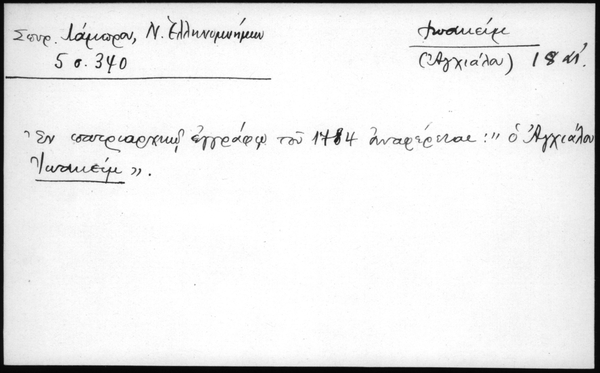 Σπυρ. Λάμπρου, Ν. Ἑλληνομνήμων
5 σ. 340
Ἰωακείμ
(Ἀγχιάλου) 18 αἰ.
Ἐν πατριαρχικῷ ἐγγράφῳ τοῦ 1784 ἀναφέρεται: "ὁ Ἀγχιάλου
Ἰωακείμ".